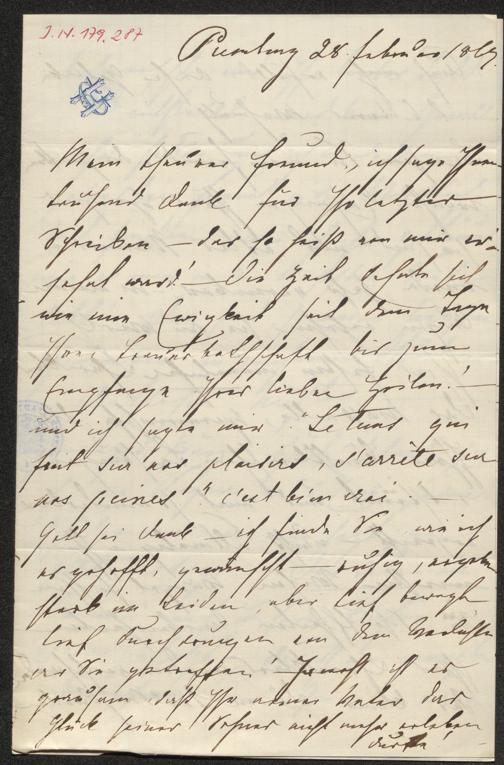 I.N. 179.287
28. Februar 186
Mein theurer Freund, ich sage Ihnen
tausend Dank für Ihr letztes
Schreiben – das so heiß von mir er-
sehnt ward! – Die Zeit dehnte sich
wie eine Ewigkeit seit dem Tage
Ihrer Trauerbothschaft bis zum
Empfange Ihrer lieben Zeilen! –
und ich sagte mir "Le temps qui
fuit sur nos plaisirs, s'arrête sur
nos peines" c'est bien vrai. –
Gott sei Dank – ich finde Sie wie ich
es gehofft, gewünscht – ruhig, ergeben
stark im Leiden, aber tief bewegt
tief durchdrungen von dem Verluste
der Sie getroffen! ist es
grausam daß Ihr armer Vater das
Glück seines Sohnes nicht mehr erleben
durfte